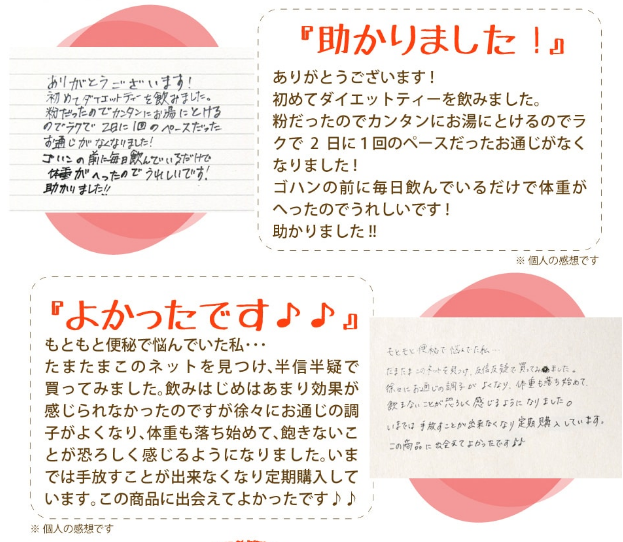 『助かりました！』
ありがとうございます！
初めてダイエットティーを飲みました。
粉だったのでカンタンにお湯にとけるのでラ
クで 2 日に１回のペースだったお通じがなく
なりました！
ゴハンの前に毎日飲んでいるだけで体重が
へったのでうれしいです！
助かりました!!
※ 個人の感想です
ありがとうございます！
初めてダイエットティーを飲みました。
粉だったのでカンタンにお湯にとける
のでラクで 2日に1回のペースだった
お通じがなくなりました！
ゴハンの前に毎日飲んでいるだけで
体重がへったのでうれしいです！
助かりました!!
『よかったです♪♪』
もともと便秘で悩んでいた私･･･
たまたまこのネットを見つけ、半信半疑で
買ってみました。飲みはじめはあまり効果が
感じられなかったのですが徐々にお通じの調
子がよくなり、体重も落ち始めて、飽きないこ
とが恐ろしく感じるようになりました。いま
では手放すことが出来なくなり定期購入して
います。この商品に出会えてよかったです♪♪
※ 個人の感想です
もともと便秘で悩んでいた私…
たまたまこのネットを見つけ、半信半疑で買ってみました。
徐々にお通じの調子がよくなり、体重も落ち始めて、
飲まないことが恐ろしく感じるようになりました。
いまでは手放すことが出来なくなり定期購入しています。
この商品に出会えてよかったです♪♪